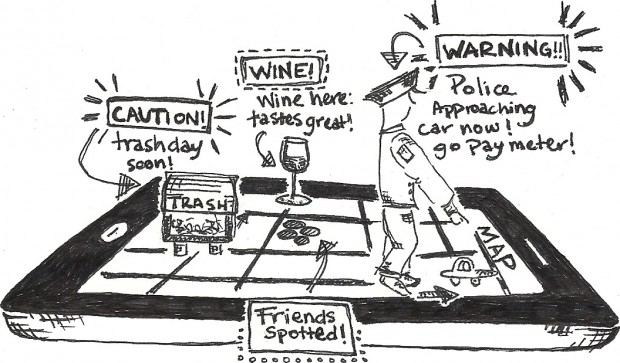 CAUTION!
trashday
soon!
TRASH
WINE!
Wine here:
tastes great!
WARNING!!
Police
Approaching
car now!
go pay meter!
MAP
Friends
Spotted!